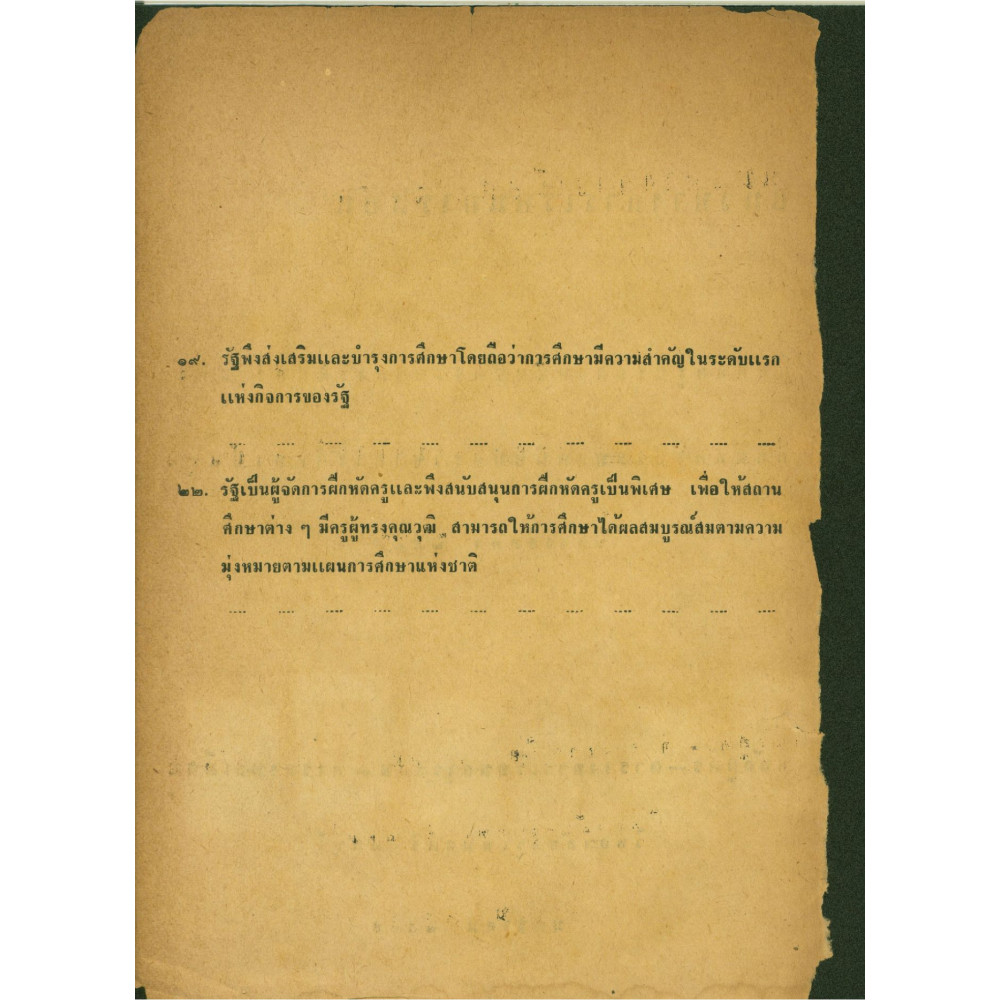 ๑๙. รัฐพึงส่งเสริมและบำรุงการศึกษาโดยถือว่าการศึกษามีความสำคัญในระดับแรก
แห่งกิจการของรัฐ
.... .... .... .... .... .... .... .... .... .... .... ....
๒๒. รัฐเป็นผู้จัดการฝึกหัดครูและพึงสนับสนุนการฝึกหัดครูเป็นพิเศษ เพื่อให้สถาน
ศึกษาต่าง ๆ มีครูผู้ทรงคุณวุฒิ สามารถให้การศึกษาได้ผลสมบูรณ์สมตามความ
มุ่งหมายตามแผนการศึกษาแห่งชาติ
.... .... .... .... .... .... .... .... .... .... .... ....